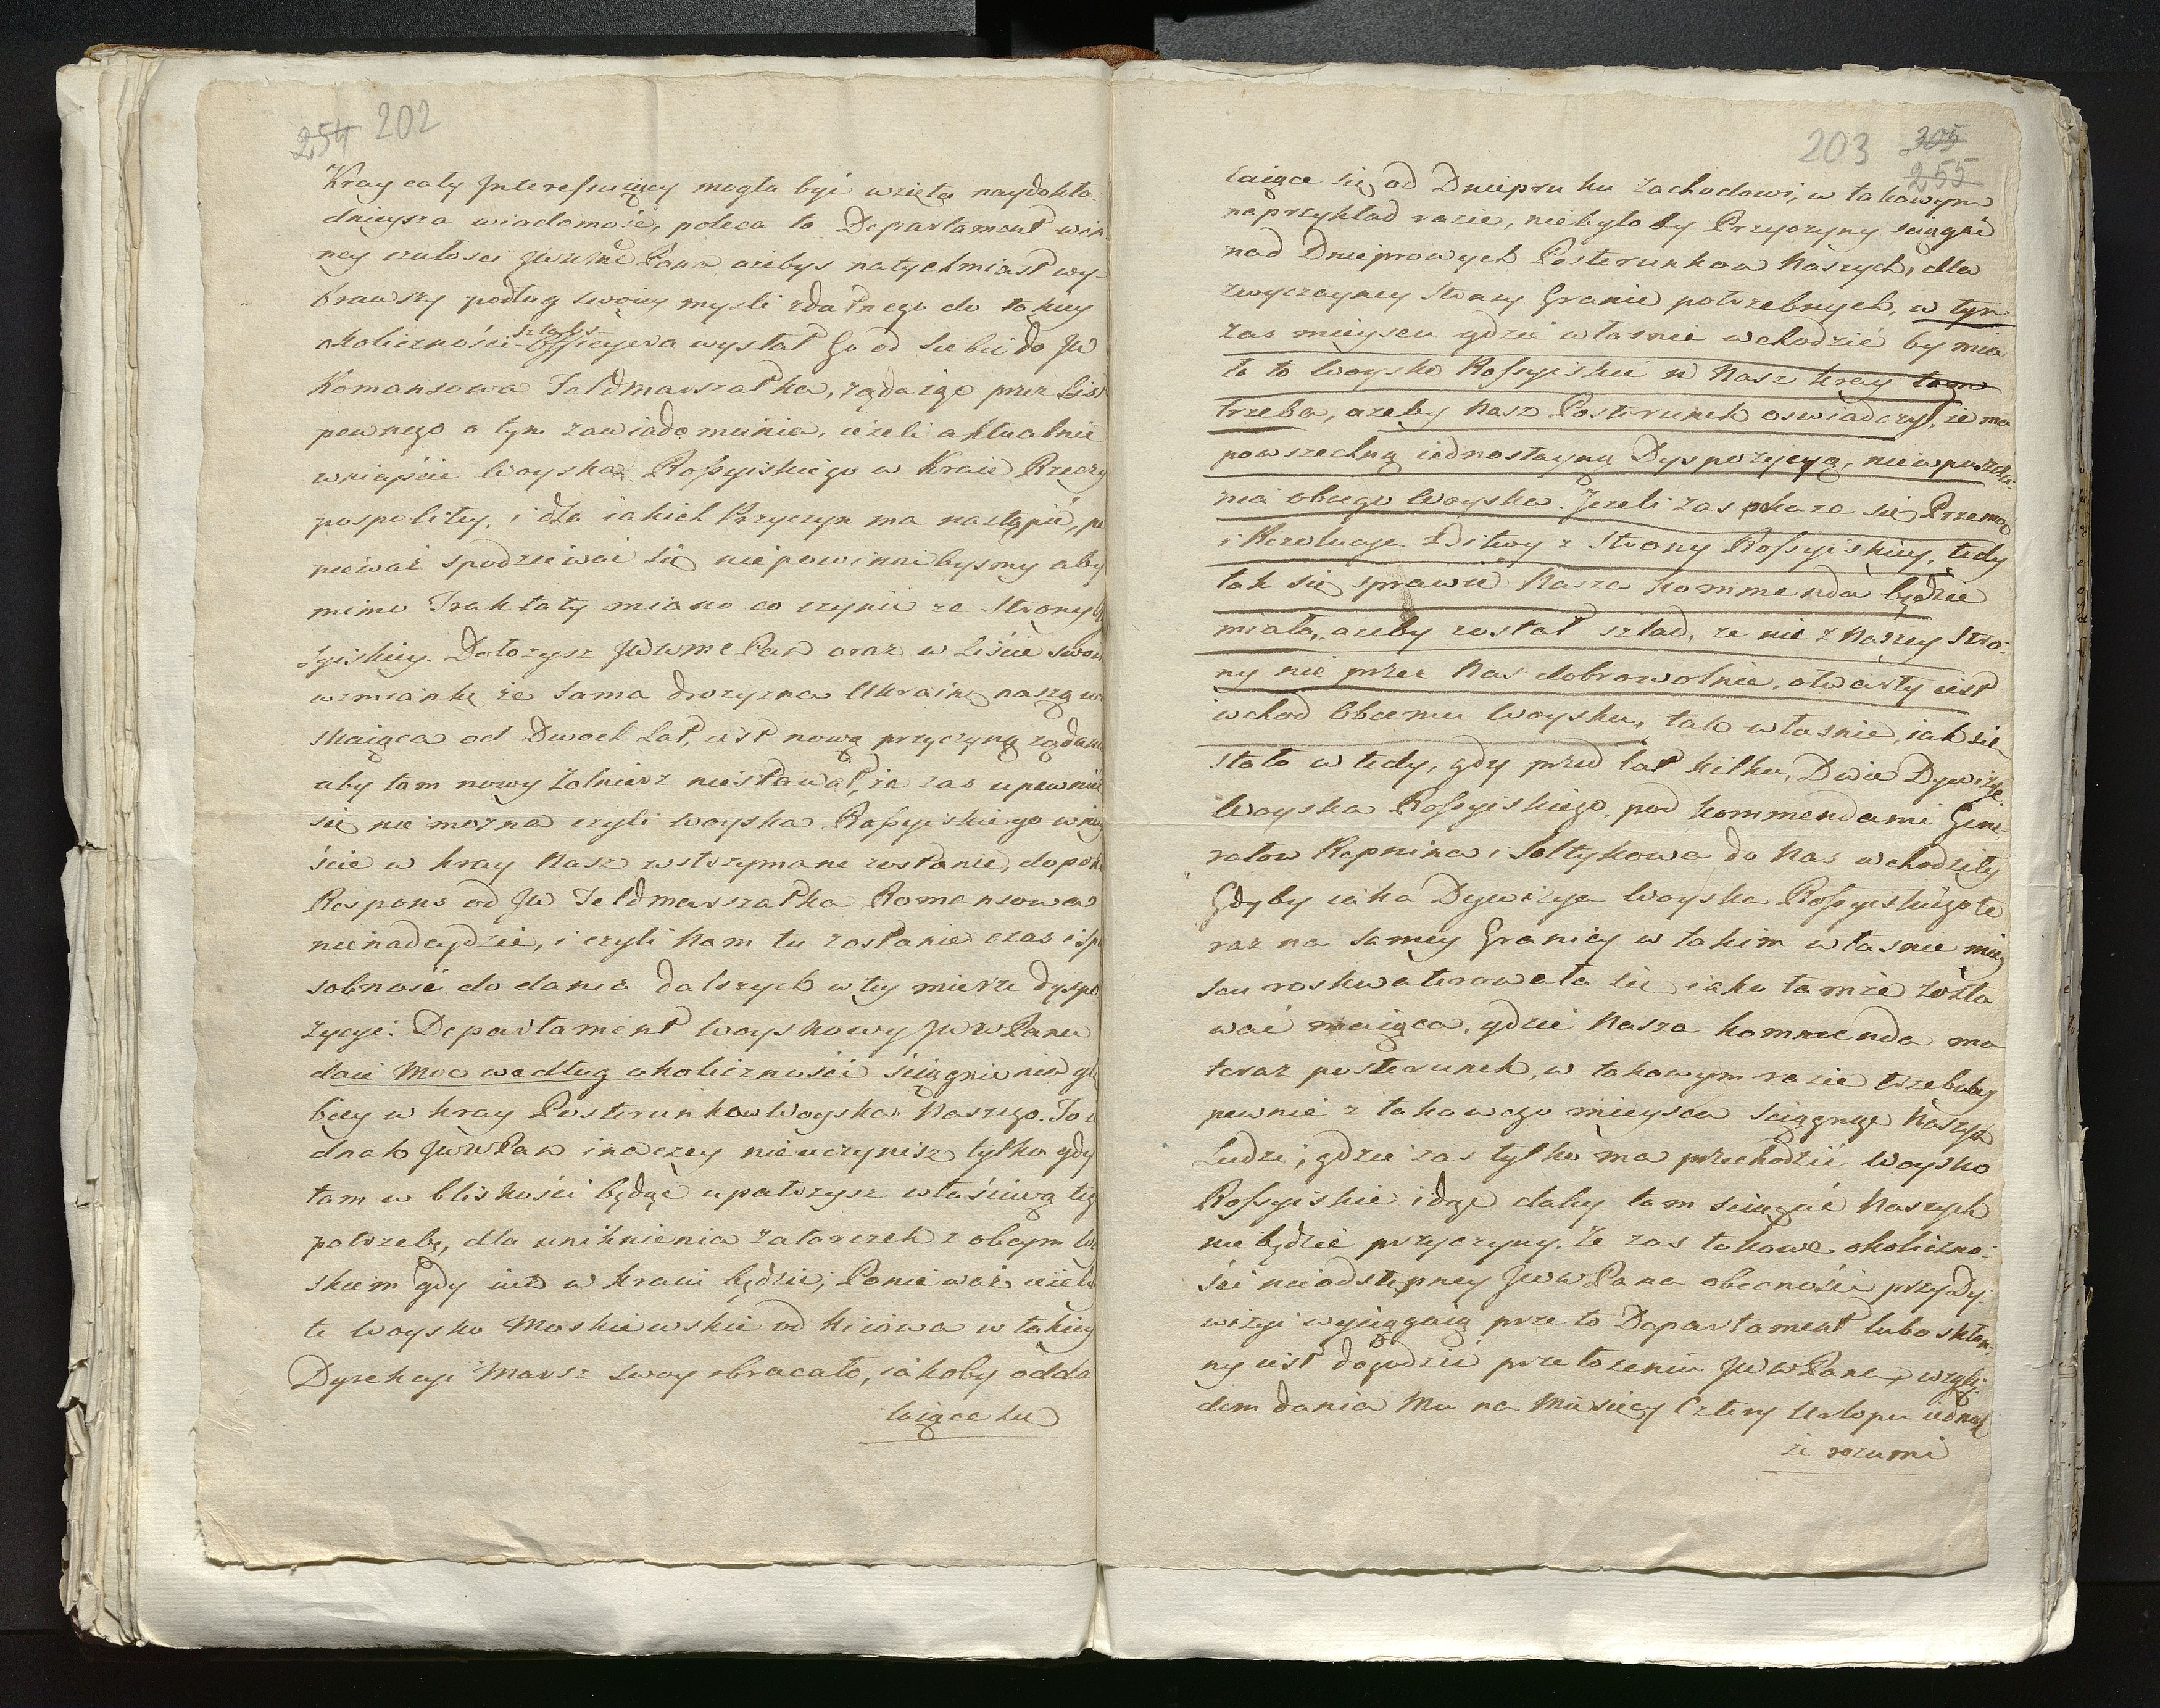 254 202
Kray cały Jnteressuiący mogła być wzięta naydokła-
dnieysza wiadomość, poleca to Departament win
ney czułości JWWMć Pana ażebyś natychmiast wy-
brawszy podług swoiey myśli zdatnego do takiey
okoliczności sztabs-Officyiera wysłał Go od siebie do JW
Romansowa Feldmarszałka, żądaiąc przez List
pewnego o tym zawiadomienia, ieżeli aktualnie
wniyście Woyska Rossyiskiego w Kraie Rzeczy
pospolitey, i dla iakich Przyczyn ma nastąpić, po
nieważ spodziewać się niepowinnibysmy aby
mimo Traktaty miano co czynić ze Strony
syiskiey. Dołożysz JWWMć Pan oraz w Liście swoim
wzmiankę że sama drożyzna Ukrainę naszą uci
skaiąca od Dwoch Lat, iest nową przyczyną żądania
aby tam nowy Żołnierz niestawał, że zas upewnić
się nie można czyli woyska Rossyiskiego wniy
ście w kray Nasz wstrzymane zostanie, dopoki
Respons od JW Feldmarszałka Romansowa
nienadeydzie, i czyli Nam tu zostanie czas i spo
sobność do dania dalszych w tey mierze dyspo
zycyi: Departament Woyskowy JWWPanu
daie Moc według okoliczności ściągnienia głę
biey w kray Posterunkow Woyska Naszego. To ie
dnak JWWPan inaczey nieuczynisz tylko gdy
tam w bliskości będąc upatrzysz właściwą tego
potrzebę, dla uniknienia zatarczek z obcym Woy
skiem gdy iuż w kraiu będzie; Ponieważ ieżeliby
te Woysko Moskiewskie od Kiiowa w takiey
Dyrekcyi Marsz swoy obracało, iakoby odda
laiące się
203 305
255
laiące się od Dniepru ku zachodowi, w takowym
naprzykład razie, niebyłoby Przyczyny ściągać
nad Dnieprowych Posterunkow Naszych, dla
zwyczayney Straży Granic potrzebnych, w tym
zas mieyscu gdzie własnie wchodzić by mia
ło to Woysko Rossyiskie w Nasz kray tam
trzeba, ażeby Nasz Posterunek oswiadczył, że ma
powszechną iednostayną Dyspozycyą, niewpuszcza-
nia obcego Woyska. Jeżeli zas pokaże się Przemoc
i Rezolucya Bitwy z Strony Rossyiskiey, tedy
tak się sprawić Nasza Kommenda będzie
miała, ażeby został szlad, że nie z Naszey Stro-
ny nie przez Nas dobrowolnie, otwarty iest
wchod Obcemu Woysku, tak własnie, iak się
stało w tedy, gdy przed lat kilku, Dwie Dywizye
Woyska Rossyiskiego, pod kommendami Gene-
rałow Repnina i Sołtykowa do Nas wchodziły
Gdyby iaka Dywizya Woyska Rossyiskiego te
raz na samey Granicy w takim własnie miey
scu roskwaterowała się iako tamże zosta
wać maiąca, gdzie Nasza kommenda ma
teraz posterunek, w takowym razie trzebaby
pewnie z takowego mieysca ściągnąć Naszych
Ludzi, gdzie zas tylko ma przechodzić Woysko
Rossyiskie idąc daley tam sciągać Naszych
nie będzie przyczyny. Że zas takowe okoliczno-
ści nieodstępney JWWPana obecności przy Dy-
wizyi wyciągaią przeto Departament lubo skłon-
ny iest dogodzić przełożeniu JWWPana, wzglę-
dem dania Mu na Miesięcy Cztery Urlopu iednak
że rozumi